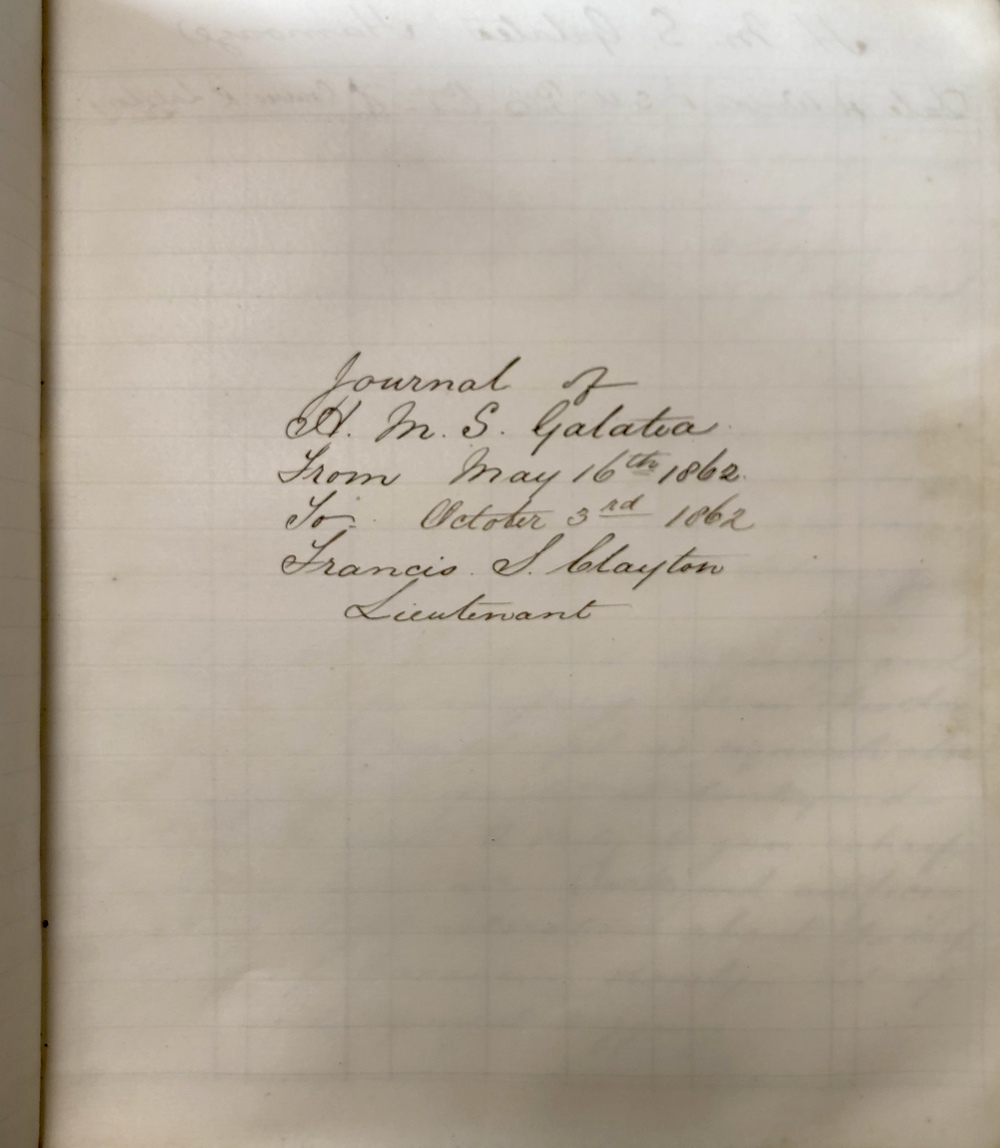 Journal of
H. M. S. Galatea
From May 16th 1862.
To October 3rd 1862
Francis S. Clayton
Lieutenant